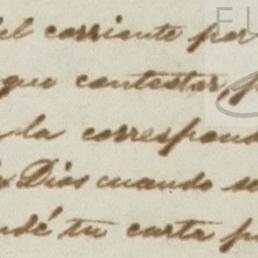 el corriente por
que contestar, p
la correspond
Dios cuando se
ndé tu carta p